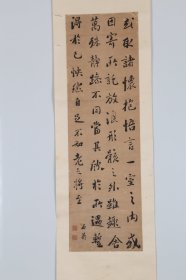 或取諸懷抱悟言一室之內或
因寄所託放浪形骸之外雖趣舍
萬殊靜躁不同當其欣於所遇暫
得於己快然自足不知老之將至